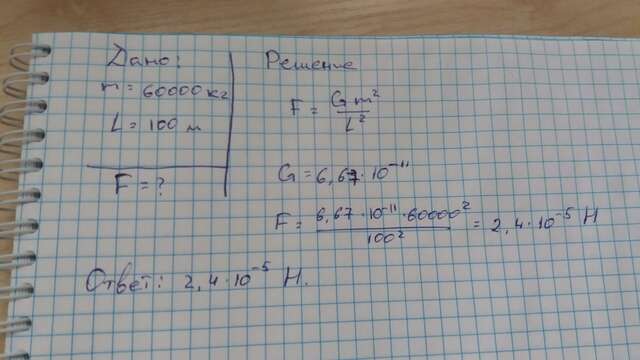 Дано:
m = 60000 кг
L = 100 м
F = ?
Решение
F = Gm²/L²
G = 6,67·10⁻¹¹
F = 6,67·10⁻¹¹·60000²/100² = 2,4·10⁻⁵ Н
Ответ: 2,4·10⁻⁵ Н.